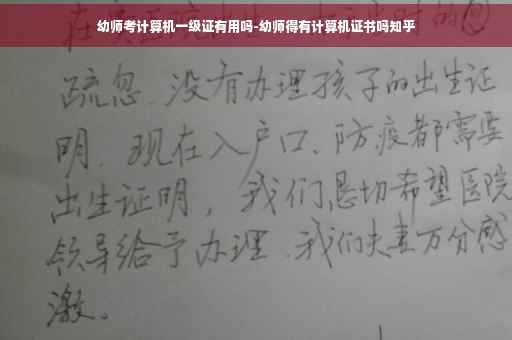 幼师考计算机一级证有用吗-幼师得有计算机证书吗知乎
疏忽、没有办理孩子的出生证
明、现在入户口、防疫都需要
出生证明，我们恳切希望医院
领导给予办理、我们夫妻万分感
激。